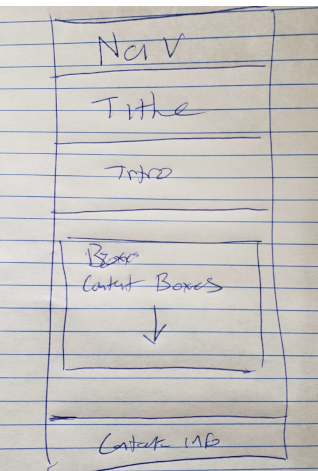 Nav
Title
Intro
Content Boxes
Contact info